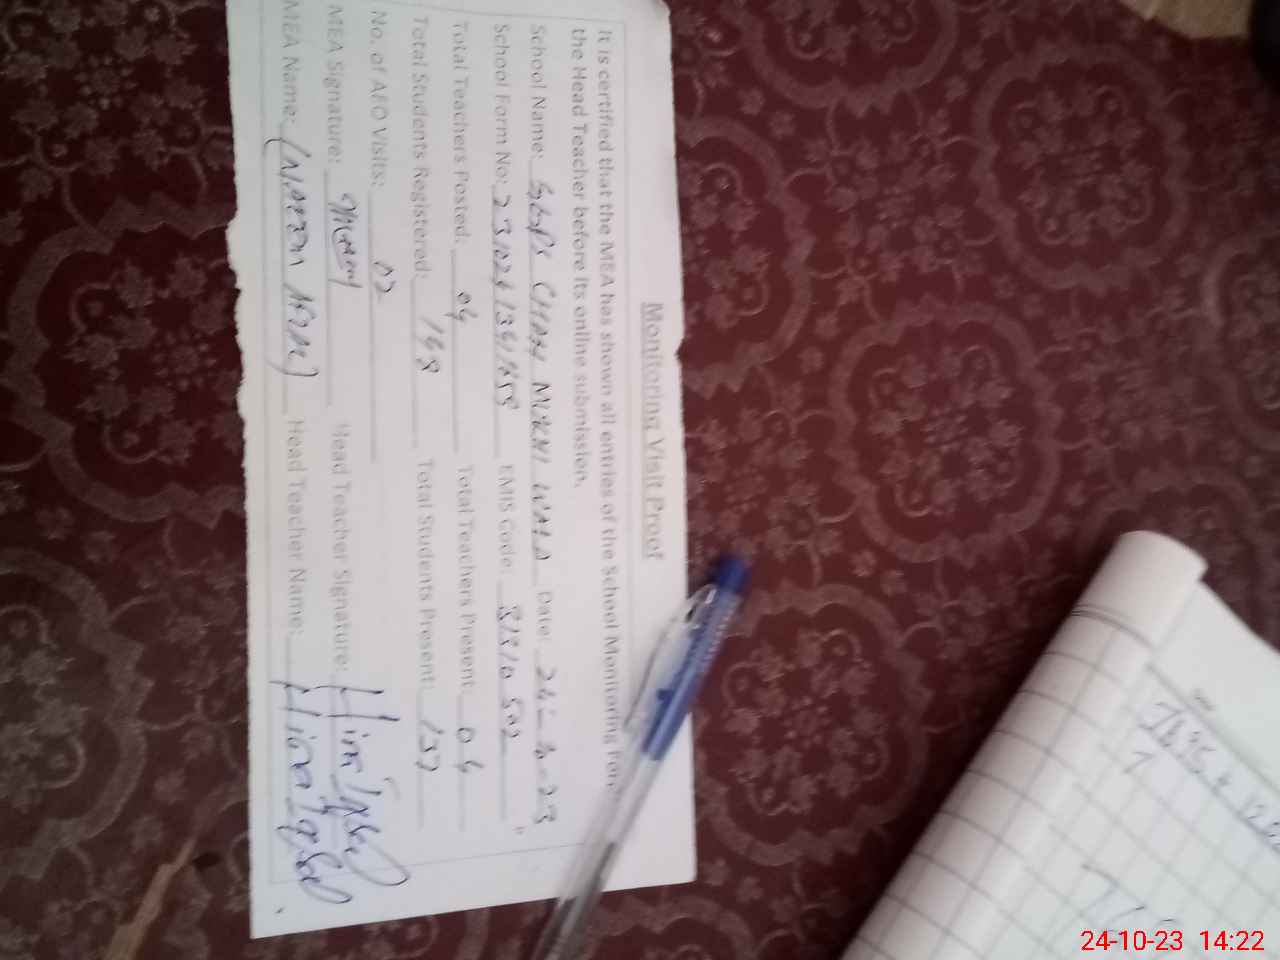 Monitoring Visit Proof
It is certified that the MEA has shown all entries of the School Monitoring Form
the Head Teacher before its online submission.
School Name: GGPS CHAH MOCHI WALA Date: 24-
School Form No: EMIS Code: 31310502
Total Teachers Posted: 04 Total Teachers Present: 04
Total Students Registered: 148 Total Students Present: 137
No. of AEO Visits: 02
MEA Signature: Head Teacher Signature: Hina Iqbal
MEA Name: Head Teacher Name: Hina Iqbal
24-10-23 14:22